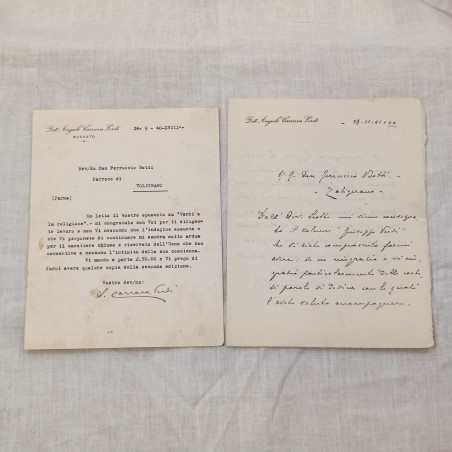 Dott. Angiolo Carrara Verdi
BUSSETO
24- 9 - 40-XVIII°-
Rev/do Don Ferruccio Botti
Parroco di
VOLIGNANO
(Parma)
Ho letto il vostro opuscolo su "Verdi e
la religione".- mi congratulo con Voi per il diligen-
te lavoro e non Vi nascondo che l'indagine assunta e
che Vi proponete di continuare mi sembra molto ardua
per il carattere chiuso e riservato dell'Uomo che non
consentiva a nessuno l'intimità della sua coscienza.
Vi mando a parte £.50.00 e Vi prego di
farmi avere qualche copia della seconda edizione.
Vostro dev/mo:
A. Carrara Verdi
Dott. Angiolo Carrara Verdi
29-11-41
Don Ferruccio Botti
Dall' Dott. mi viene consegna
to il volume "Giuseppe Verdi"
che di Ella
avere. Se ne ringrazio e mi
particolarmente delle corte
si parole di dedica con le quali
voluto accompagnare.